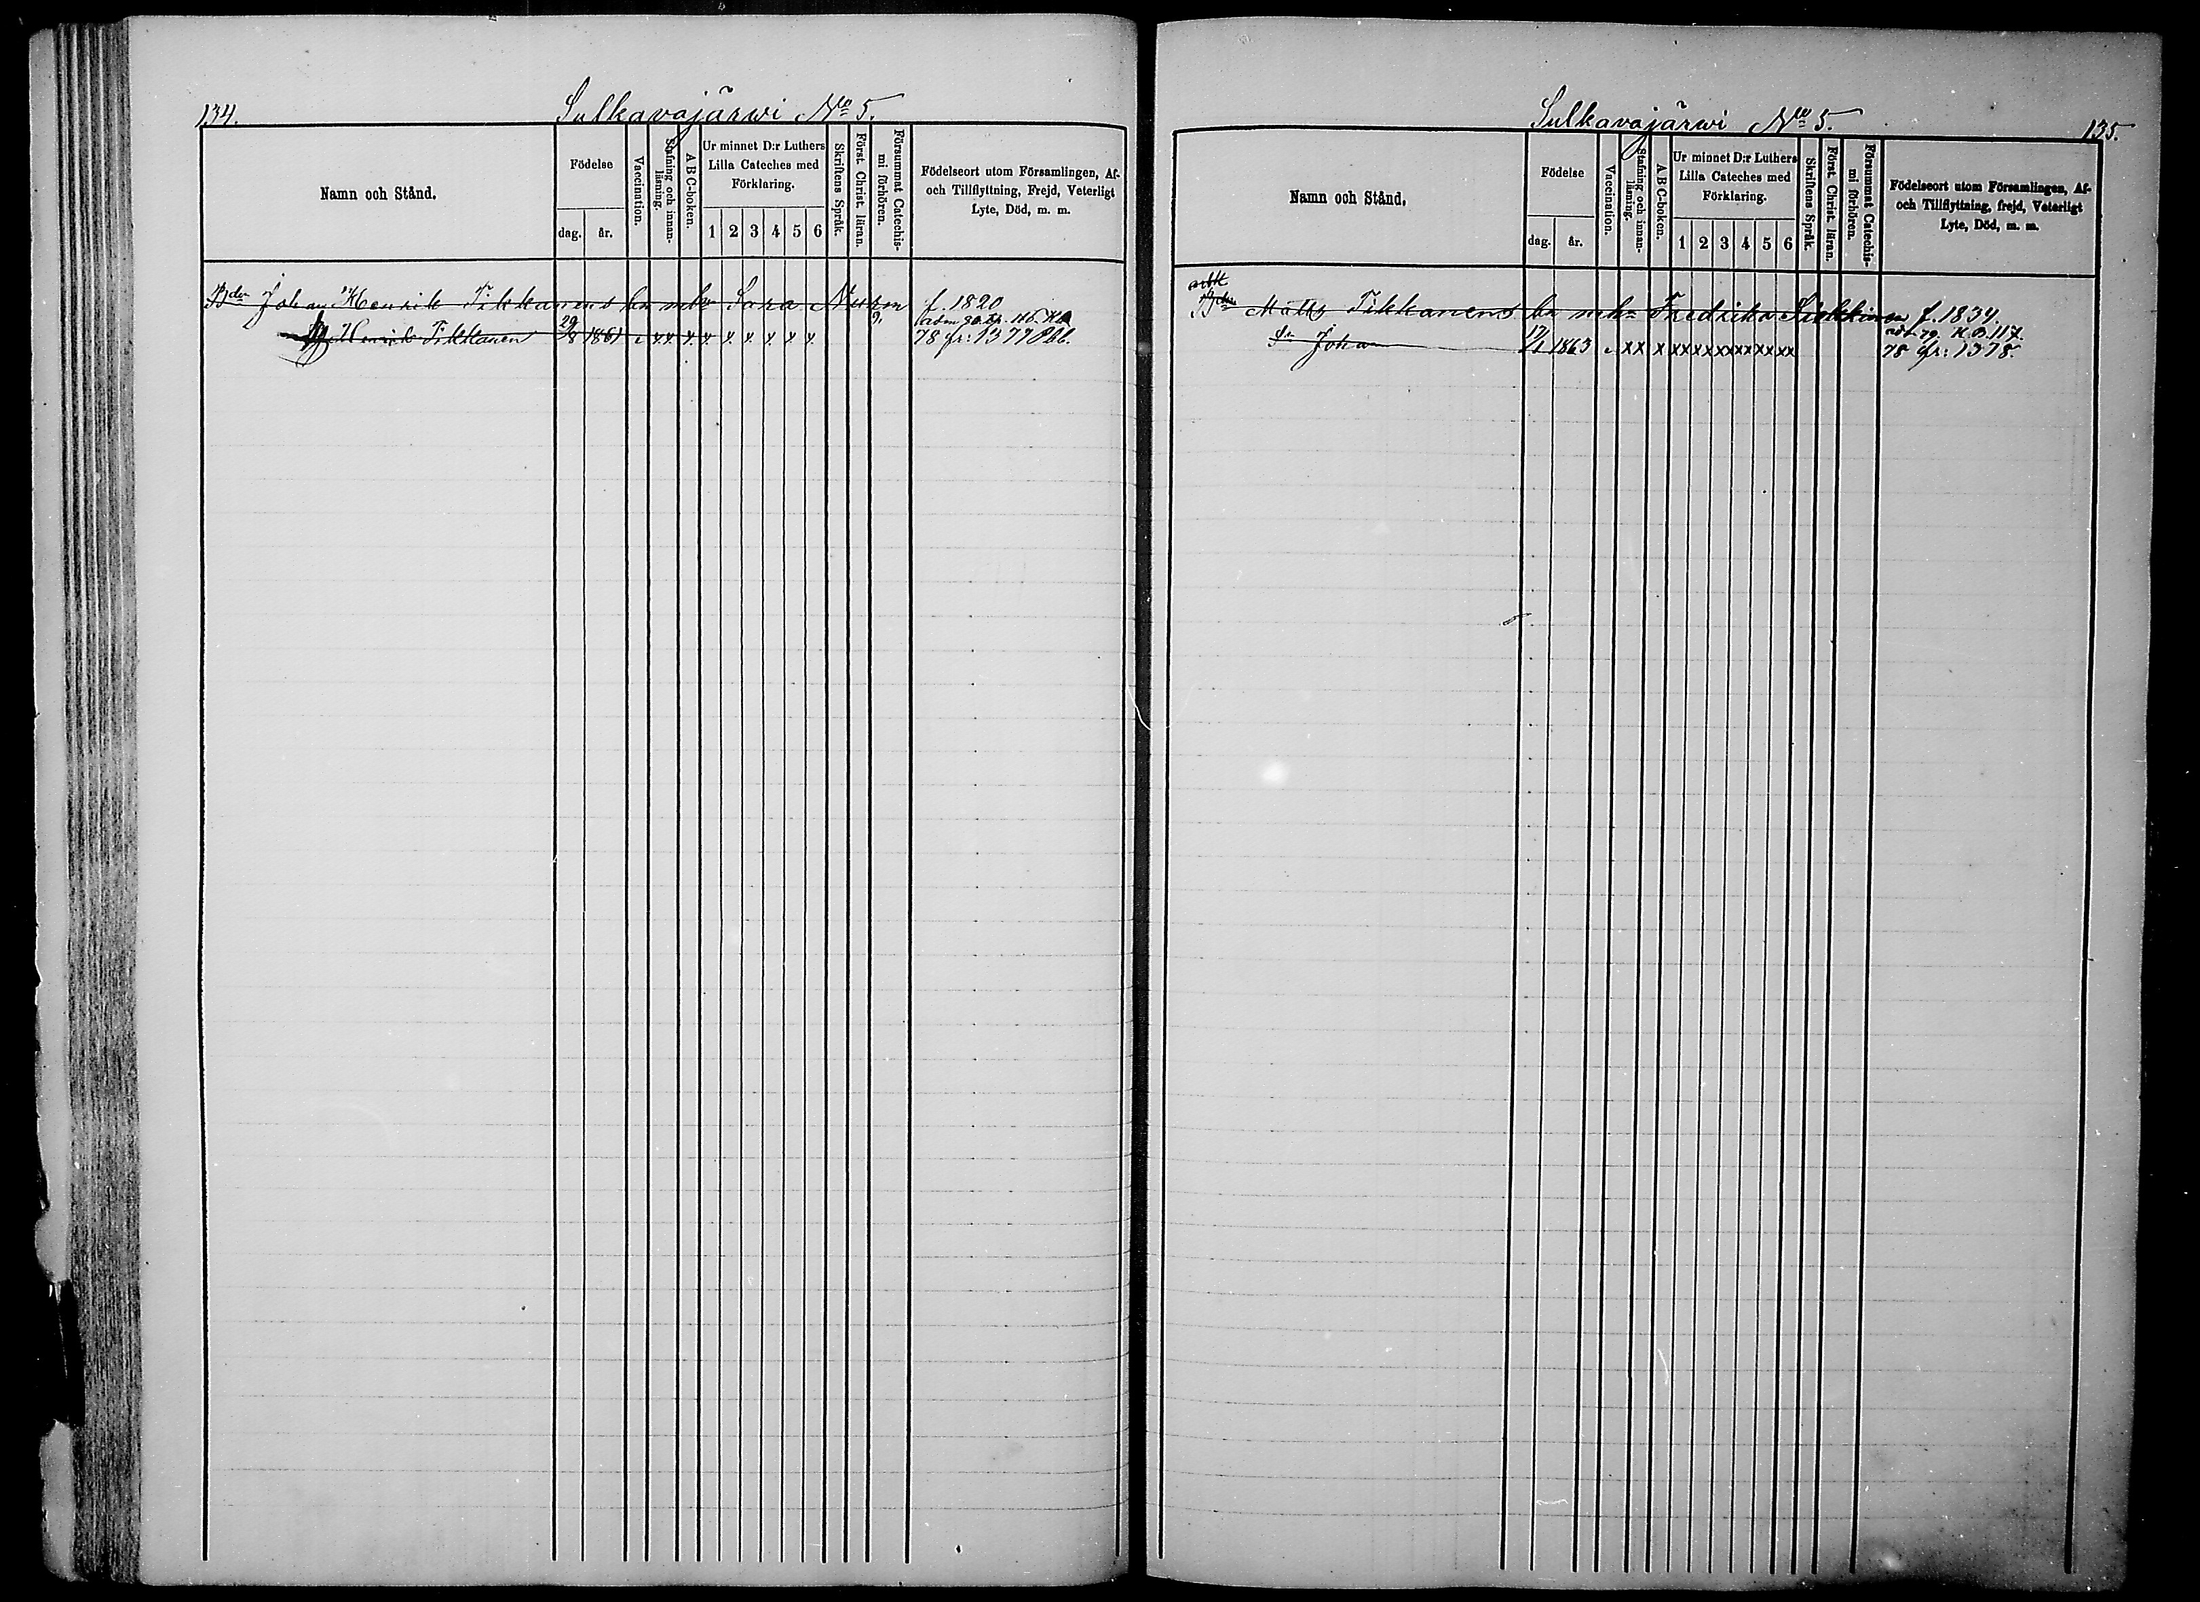 134.
Sulkavajärwi No 5.
Namn och Stånd.
Födelse
dag.
år.
Vaccination.
Stafning och innan-
läsning.
A B C-boken.
Ur minnet D:r Luthers
Lilla Cateches med
Förklaring.
1 2 3 4 5 6
Skriftens Språk.
Först. Christ. läran.
Försummat Catechis-
mi förhören.
Födelseort utom Församlingen, Af-
och Tillflyttning, Frejd, Veterligt
Lyte, Död, m. m.
Bdn Johan Henrik Tikkanens Sara f. 1820
Henrik Tikkanen 29/8 1861 x x x x x x x x x 78 fr: 1377
Sulkavajärwi No 5.
135.
Namn och Stånd.
Födelse
dag.
år.
Vaccination.
Stafning och innan-
läsning.
A B C-boken.
Ur minnet D:r Luthers
Lilla Cateches med
Förklaring.
1 2 3 4 5 6
Skriftens Språk.
Först. Christ. läran.
Försummat Catechis-
mi förhören.
Födelseort utom Församlingen, Af-
och Tillflyttning, frejd, Veterligt
Lyte, Död, m. m.
Matts Tikkanens Fredrika f. 1834.
Johan 1863 xx x xx xx xx xx xx xx 78 fr: 1378.